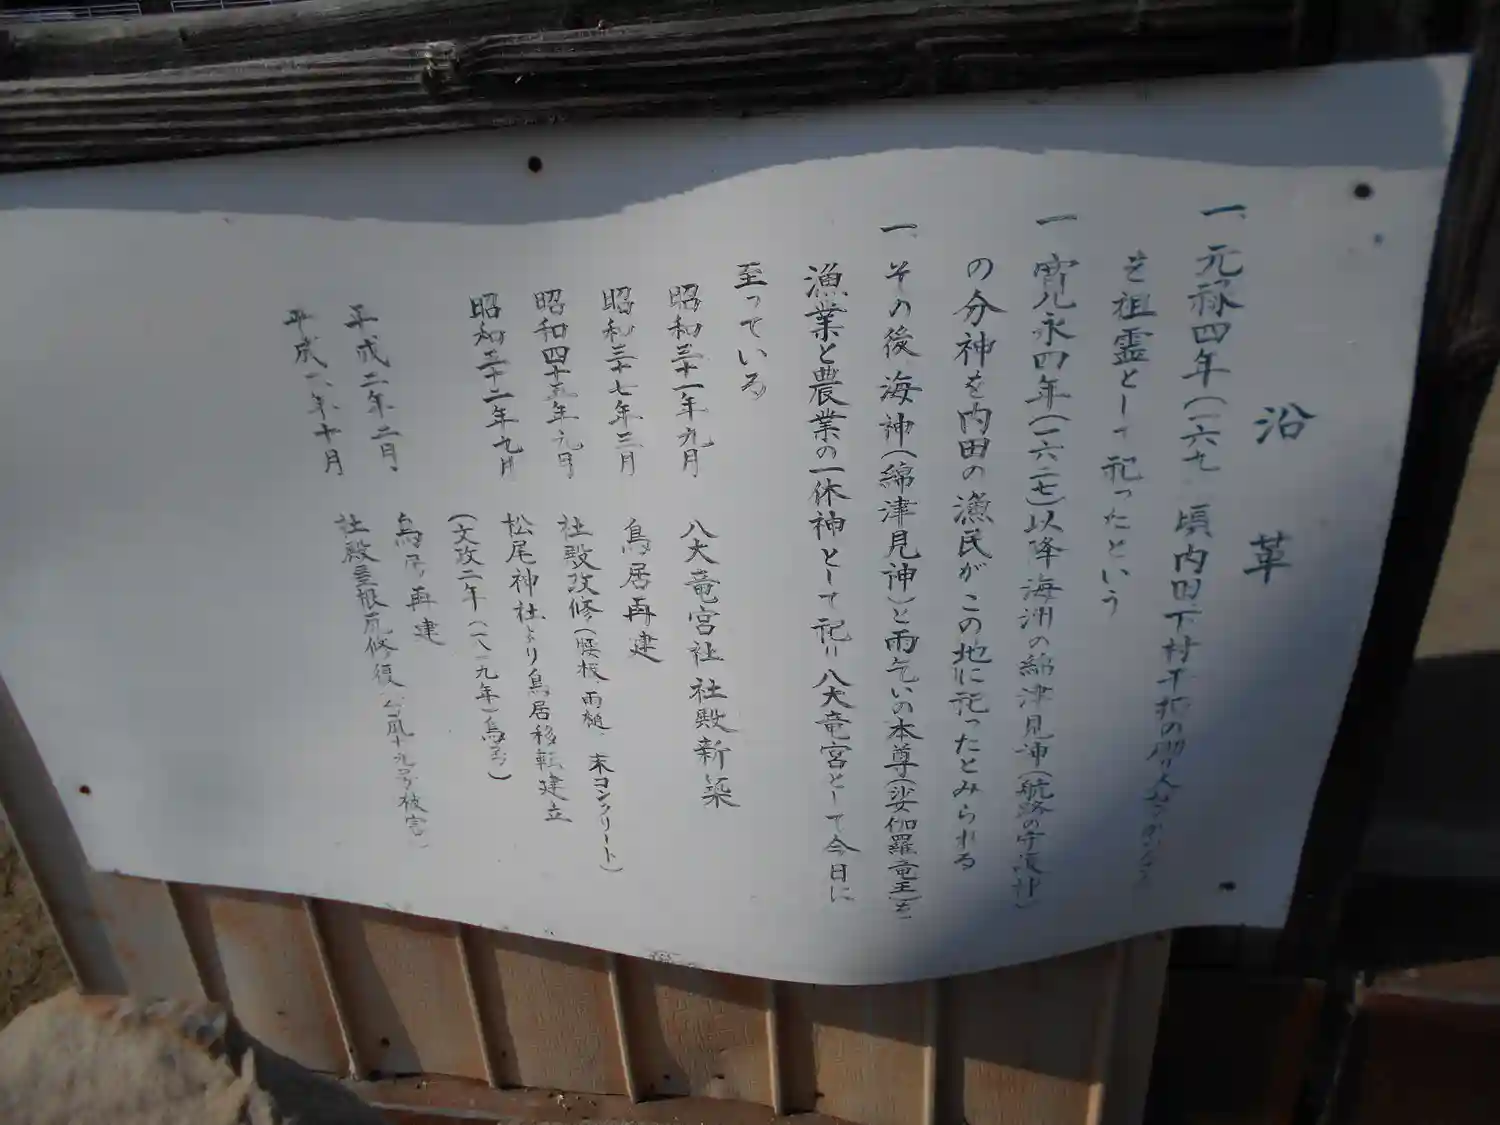 沿革
一、元禄四年(一六九 頃内田下村干拓の
を祖霊として祀ったという
一 寛永四年(一六二七)以降海洲の綿津見神(航路の守護神)
の分神を内田の漁民がこの地に祀ったとみられる
一 その後海神(綿津見神)と雨乞いの本尊(娑伽羅竜王)を
漁業と農業の一体神として祀り八大竜宮として今日に
至っている
昭和三十一年九月 八大竜宮社社殿新築
昭和三十七年三月 鳥居再建
昭和四十五年九月 社殿改修(腰板、雨樋、末コンクリート)
昭和五十二年九月 松尾神社より鳥居移転建立
(文政二年(一八一九年)鳥居)
平成二年二月 鳥居再建
平成二年十月 社殿屋根瓦修復(台風十九号被害)